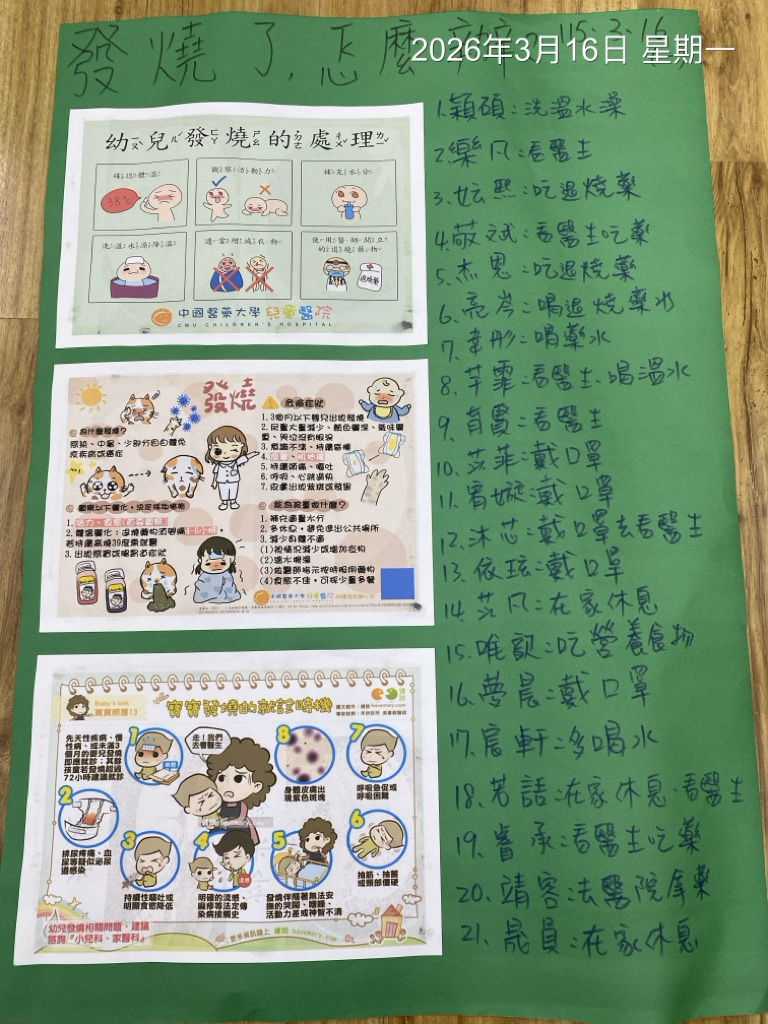 發燒了,怎麼辦? 115.3.16
2026年3月16日 星期一
幼兒發燒的處理
確認體溫
38℃
觀察活動力
補充水分
洗溫水澡降溫
適當增減衣物
使用醫師開立的退燒藥物
退燒藥
中國醫藥大學 兒童醫院
CMU CHILDREN'S HOSPITAL
發燒
為什麼發燒?
感染、中暑、少部分自自體免
疫疾病或癌症
觀察以下變化,決定採取措施
1. 活力、食慾
3. 出現感冒或腸胃道症狀
危險症狀
1. 3個月以下嬰兒出現發燒
2. 尿量大量減少、顏色變深、氣味變
重、哭泣沒有眼淚
3. 意識不清、持續昏睡
5. 持續頭痛、嘔吐
6. 呼吸、心跳過快
7. 皮膚出現紫斑或發紺
能為孩童做什麼?
1. 補充適量水分
2. 多休息,避免進出公共場所
3. 減少身體不適
(1) 視情況減少或增加衣物
(2) 溫水擦澡
(3) 依醫師指示按時服用藥物
(4) 食慾不佳,可採少量多餐
中國醫藥大學兒童醫院
Baby's talk
寶寶照護13
寶寶發燒的就診時機
先天性疾病、慢
性病、或未滿3
個月的嬰兒發燒
即應就診;其餘
孩童若發燒超過
72小時建議就診
走!我們
去看醫生
1
2
排尿疼痛、血
尿等疑似泌尿
道感染
3
持續性嘔吐或
明顯食慾降低
4
明確的流感、
腸病毒等法定傳
染病接觸史
5
發燒伴隨著無法安
撫的哭鬧、嗜睡、
活動力差或神智不清
6
抽筋、抽蓄
或頸部僵硬
7
呼吸急促或
呼吸困難
8
身體皮膚出
現紫色斑塊
幼兒發燒相關問題,建議
諮詢『小兒科、家醫科』
更多資訊請上 健談 havemary.com
1. 穎碩:洗溫水澡
2. 樂凡:看醫生
3. 妘熙:吃退燒藥
4. 敬斌:看醫生吃藥
5. 杰恩:吃退燒藥
6. 亮岑:喝退燒藥水
7. 韋彤:喝藥水
8. 芊霏:看醫生、喝溫水
9. 育賢:看醫生
10. 苡菲:戴口罩
11. 宥嫙:戴口罩
12. 沐芯:戴口罩去看醫生
13. 依玹:戴口罩
14. 苡凡:在家休息
15. 唯歆:吃營養食物
16. 夢晨:戴口罩
17. 宸軒:多喝水
18. 若語:在家休息、看醫生
19. 睿承:看醫生吃藥
20. 靖容:去醫院拿藥
21. 晟員:在家休息